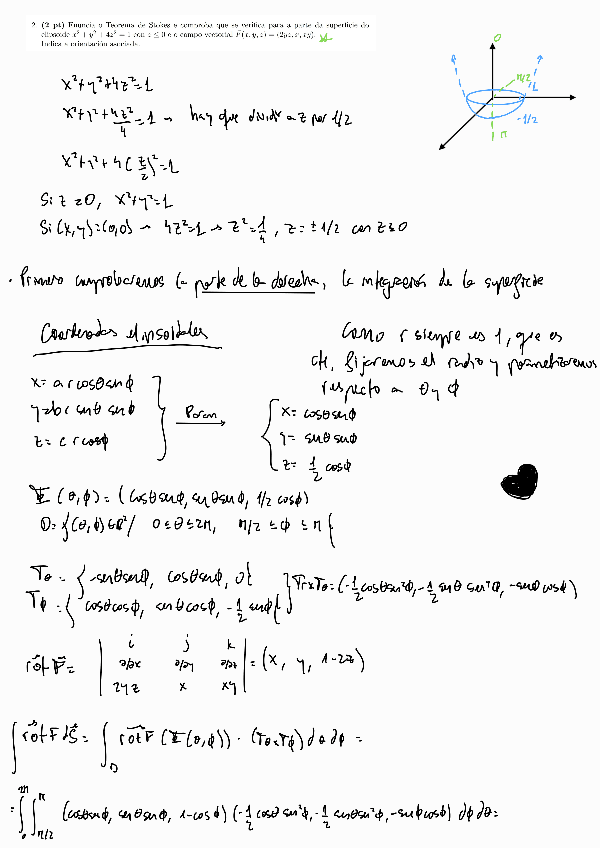 2. (2 pt) Enuncia o Teorema de Stokes e comproba que se verifica para a parte da superficie do
elipsoide x² + y² + 4z² = 1 con z ≤ 0 e o campo vectorial F⃗(x, y, z) = (2yz, x, xy).
Indica a orientación asociada.
0
π/2
1
-1/2
π
x²+y²+4z²=1
x²+y²+4z²/4=1 → hay que dividir a z por 1/2
x²+y²+4(z/2)²=1
Si z=0, x²+y²=1
Si (x,y)=(0,0) → 4z²=1 → z²=1/4, z=±1/2 con z≤0
· Primero comprobaremos la parte de la derecha, la integración de la superficie
Coordenadas elipsoidales
Como r siempre es 1, que es
cte, fijaremos el radio y parametrizaremos
respecto a θ y ϕ
x= a r cosθ senϕ
y= b r senθ senϕ
z= c r cosϕ
Param
x= cosθ senϕ
y= senθ senϕ
z= 1/2 cosϕ
Ψ(θ,ϕ)=(cosθsenϕ, senθsenϕ, 1/2 cosϕ)
D={(θ,ϕ)∈R²/ 0≤θ≤2π, π/2≤ϕ≤π}
Tθ = {-senθsenϕ, cosθsenϕ, 0}
Tϕ = {cosθcosϕ, senθcosϕ, -1/2 senϕ}
TθxTϕ=(-1/2 cosθsen²ϕ, -1/2 senθ sen²ϕ, -senϕ cosϕ)
rot F⃗ = | i j k
∂/∂x ∂/∂y ∂/∂z
2yz x xy | = (x, y, 1-2z)
∫ rot F⃗ dS⃗ = ∫_D rot F⃗ (Ψ(θ,ϕ)) · (TθxTϕ) dθ dϕ =
= ∫_0^{2π} ∫_{π/2}^{π} (cosθsenϕ, senθsenϕ, 1-cosϕ) (-1/2 cosθ sen²ϕ, -1/2 senθsen²ϕ, -senϕcosϕ) dϕ dθ=